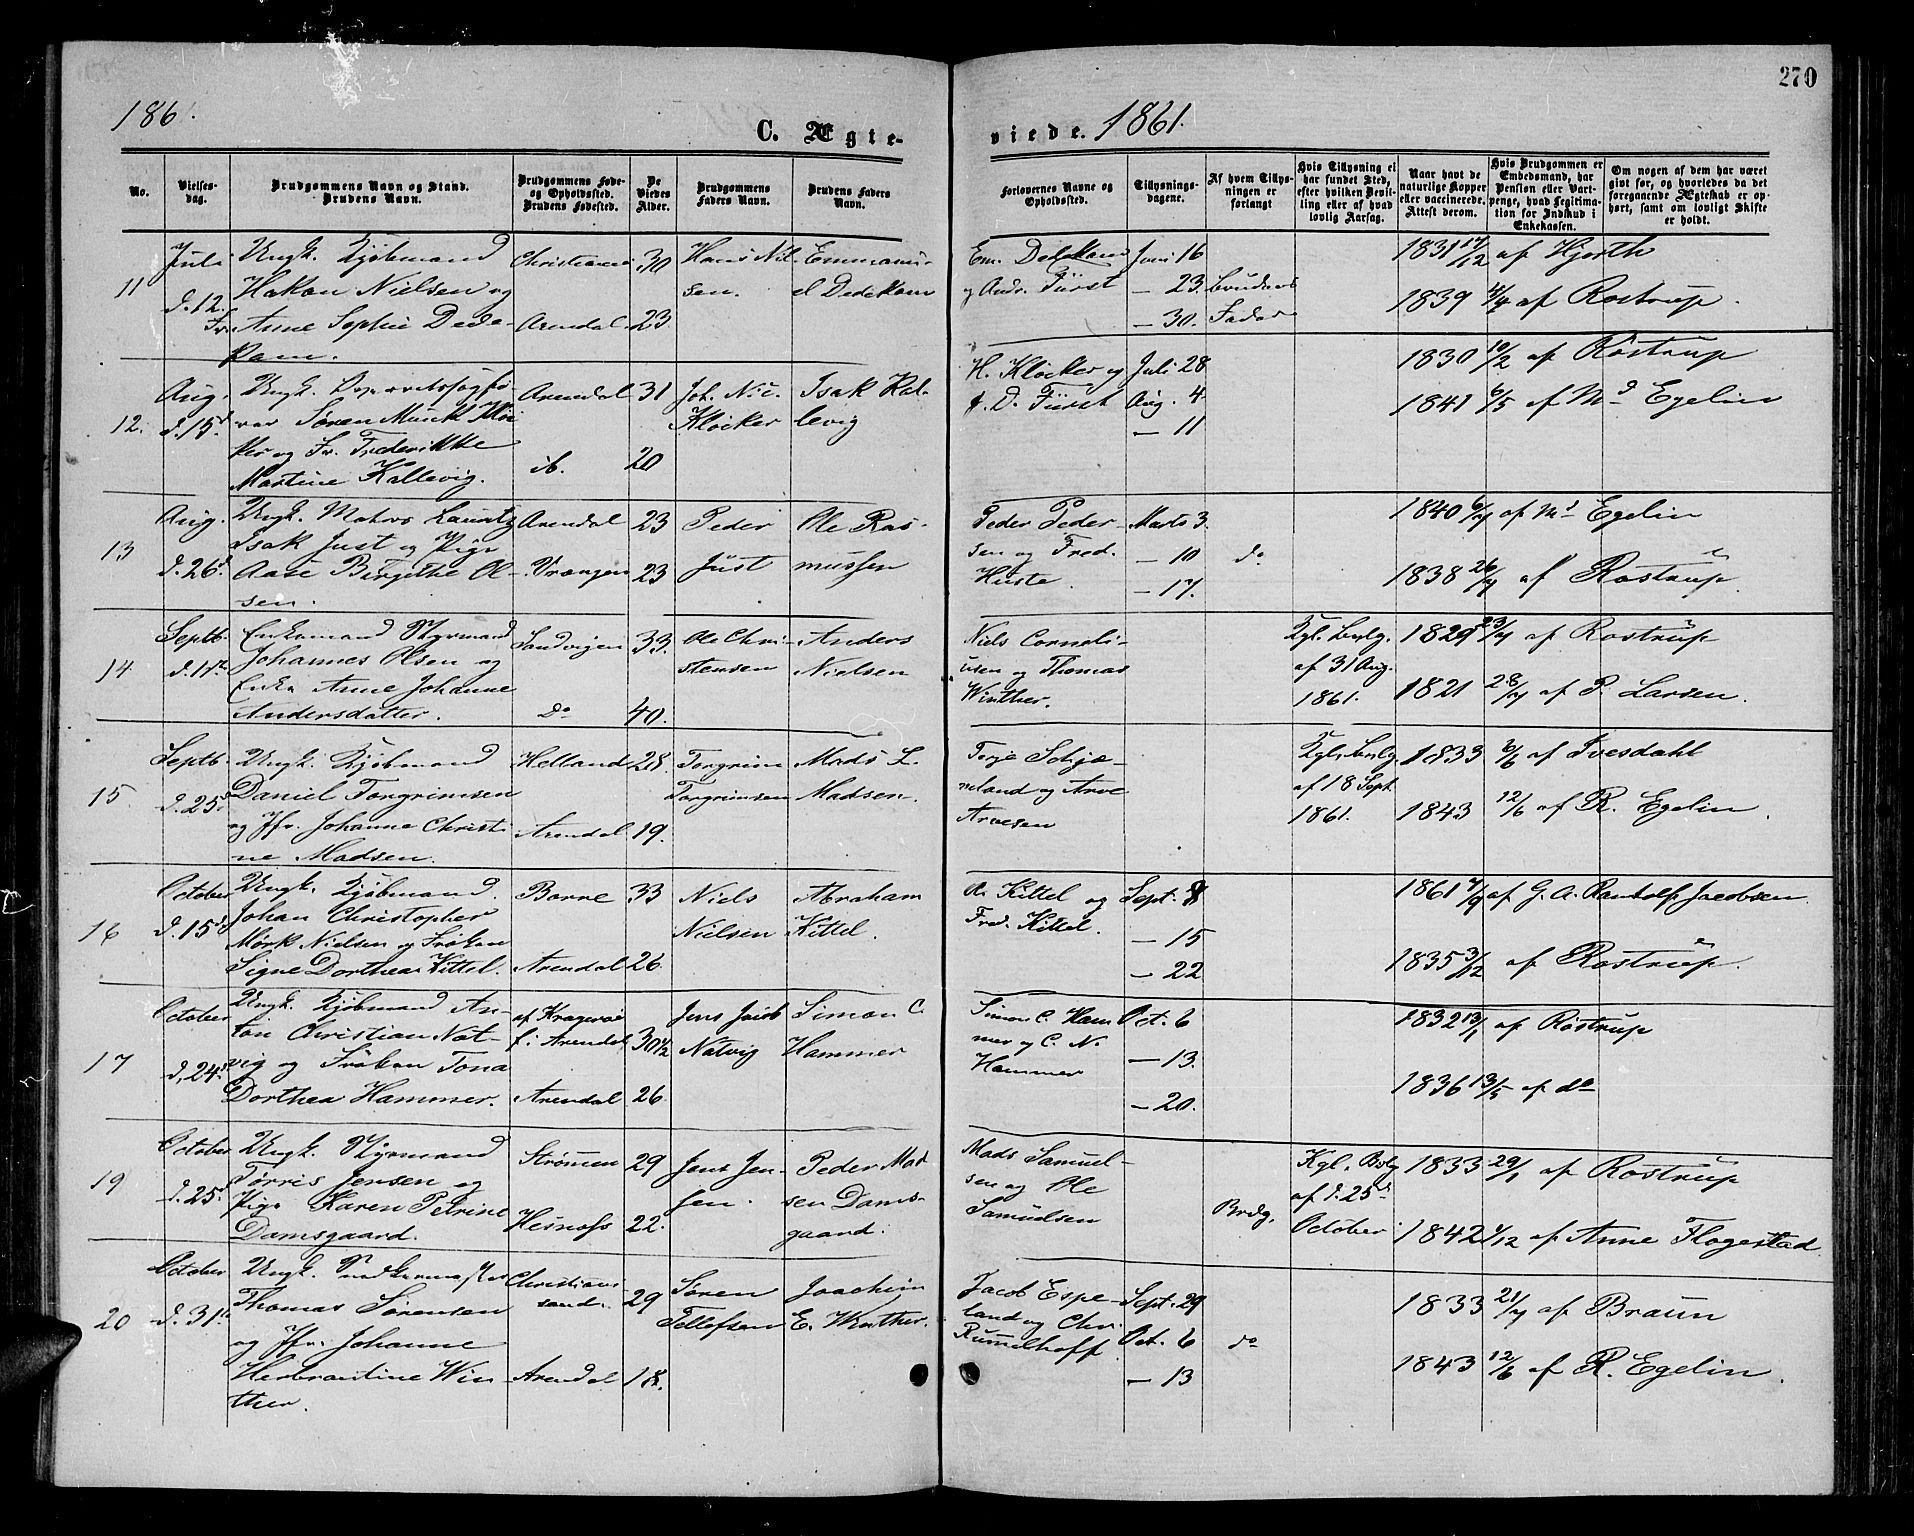 270
186
1861.
C. Ægte-
viede.
No.
Vielses-
dag.
Brudgommens Navn og Stand.
Brudens Navn.
Brudgommens Føde-
og Opholdssted.
Brudens Fødested.
De
Viedes
Alder.
Brudgommens
Faders Navn.
Brudens Faders
Navn.
Forlovernes Navne og
Opholdssted.
Tillysnings-
dagene.
Af hvem Tillys-
ningen er
forlangt
Hvis Tillysning ei
har fundet Sted,
efter hvilken Bevil-
ling eller af hvad
lovlig Aarsag.
Naar havt de
naturlige Kopper
eller vaccinerede.
Attest derom.
Hvis Brudgommen er
Embedsmand, har
Pension eller Vart-
penge, hvad Legitima-
tion for Indskud i
Enkekassen.
Om nogen af dem har været
givt før, og hvorledes da det
foregaaende Ægteskab er op-
hørt, samt om lovligt Skifte
er holdt.
11
Juli
d. 12.
Ungk. Kjøbmand
Hakon Nielsen og
Fr. Anne Sophie Dede-
kam.
Christiania
Arendal
30
23
Hans Nil-
sen.
Emmanu-
el Dedekam
Em. Dedekam
og Andr. Fürst
Juni 16
— 23.
— 30.
Brudens
Fader
1831 17/12 af Hjorth
1839 4/4 af Rostrup.
12.
Aug.
d. 15d
Ungk. Overretssagfø-
rer Søren Munk Klöc
ker og Fr. Frederikke
Martine Kallevig.
Arendal
ib.
31
20
Joh. Nic.
Klöcker
Isak Kal-
levig
H. Klöcker og
J. D. Fürst
Juli 28
Aug. 4
— 11
1830 10/2 af Rostrup
1841 6/5 af Md Egelin
13
Aug.
d. 26d
Ungk. Matros Lauritz
Isak Just og Pige
Aase Birgithe Ol-
sen.
Arendal
Vrængen
23
23
Peder
Just
Ole Ras-
mussen
Peder Peder-
sen og Fred.
Huste.
Marts 3.
— 10
— 17.
do
1840 6/7 af Md Egelin
1838 26/7 af Rostrup.
14
Septb.
d. 17de
Enkemand Styrmand
Johannes Olsen og
Enke Anne Johanne
Andersdatter.
Sandvigen
Do
33.
40.
Ole Chri-
stensen
Anders
Nielsen
Niels Corneli-
usen og Thomas
Winther.
Kgl. Bevlg.
af 31 Aug.
1861.
1829 23/7 af Rostrup
1821 28/7 af P. Larsen.
15
Septb.
d. 25d
Ungk. Kjøbmand
Daniel Torgrimsen
og Jfr. Johanne Christi-
ne Madsen.
Helland
Arendal
28.
19.
Torgrim
Torgrimsen
Mads L.
Madsen.
Terje Schjæ-
meland og Arve
Arvesen
Kgl. Bevlg.
af 18 Sept.
1861.
1833 6/6 af Tvesdahl
1843 12/6 af R. Egelin.
16
October
d. 15d
Ungk. Kjøbmand.
Johan Christopher
Mörk Nielsen og Frøken
Signe Dorthea Kittel.
Borre
Arendal
33
26.
Niels
Nielsen
Abraham
Kittel.
A. Kittel og
Fred. Kittel.
Sept. 8
— 15
— 22
1861 7/9 af G. A. Randolf Jacobsen.
1835 3/12 af Rostrup.
17
October
d. 24d
Ungk. Kjøbmand An-
ton Christian Nat-
vig og Frøken Tona
Dorthea Hammer.
af Kragerøe
f. i Arendal
Arendal
30½
26.
Jens Jacob
Natvig
Simon C.
Hammer
Simon C. Ham
mer og C. N.
Hammer
Oct. 6
— 13.
— 20.
1832 13/1 af Rostrup
1836 13/5 af do
19
October
d. 25d
Ungk. Styrmand
Tørris Jensen og
Pige Karen Petrine
Damsgaard.
Strömen
Hesnæs
29
22.
Jens Jen-
sen.
Peder Mad
sen Dams-
gaard.
Mads Samuel-
sen og Ole
Samuelsen
Brdg.
Kgl. Bvlg
af d. 25d
October
1833 29/1 af Rostrup
1842 1/12 af Anne Flogestad.
20
October
d. 31te
Ungk.
Thomas Sörensen
og Jfr. Johanne
Herbrantine Win-
ther.
Christians
sand.
Arendal
29
18.
Sören
Tellefsen
Joachim
E. Winther.
Jacob Espe-
land og Chr.
Rummelhoff
Sept. 29
Oct. 6
— 13
do
1833 21/7 af Braun
1843 12/6 af R. Egelin.